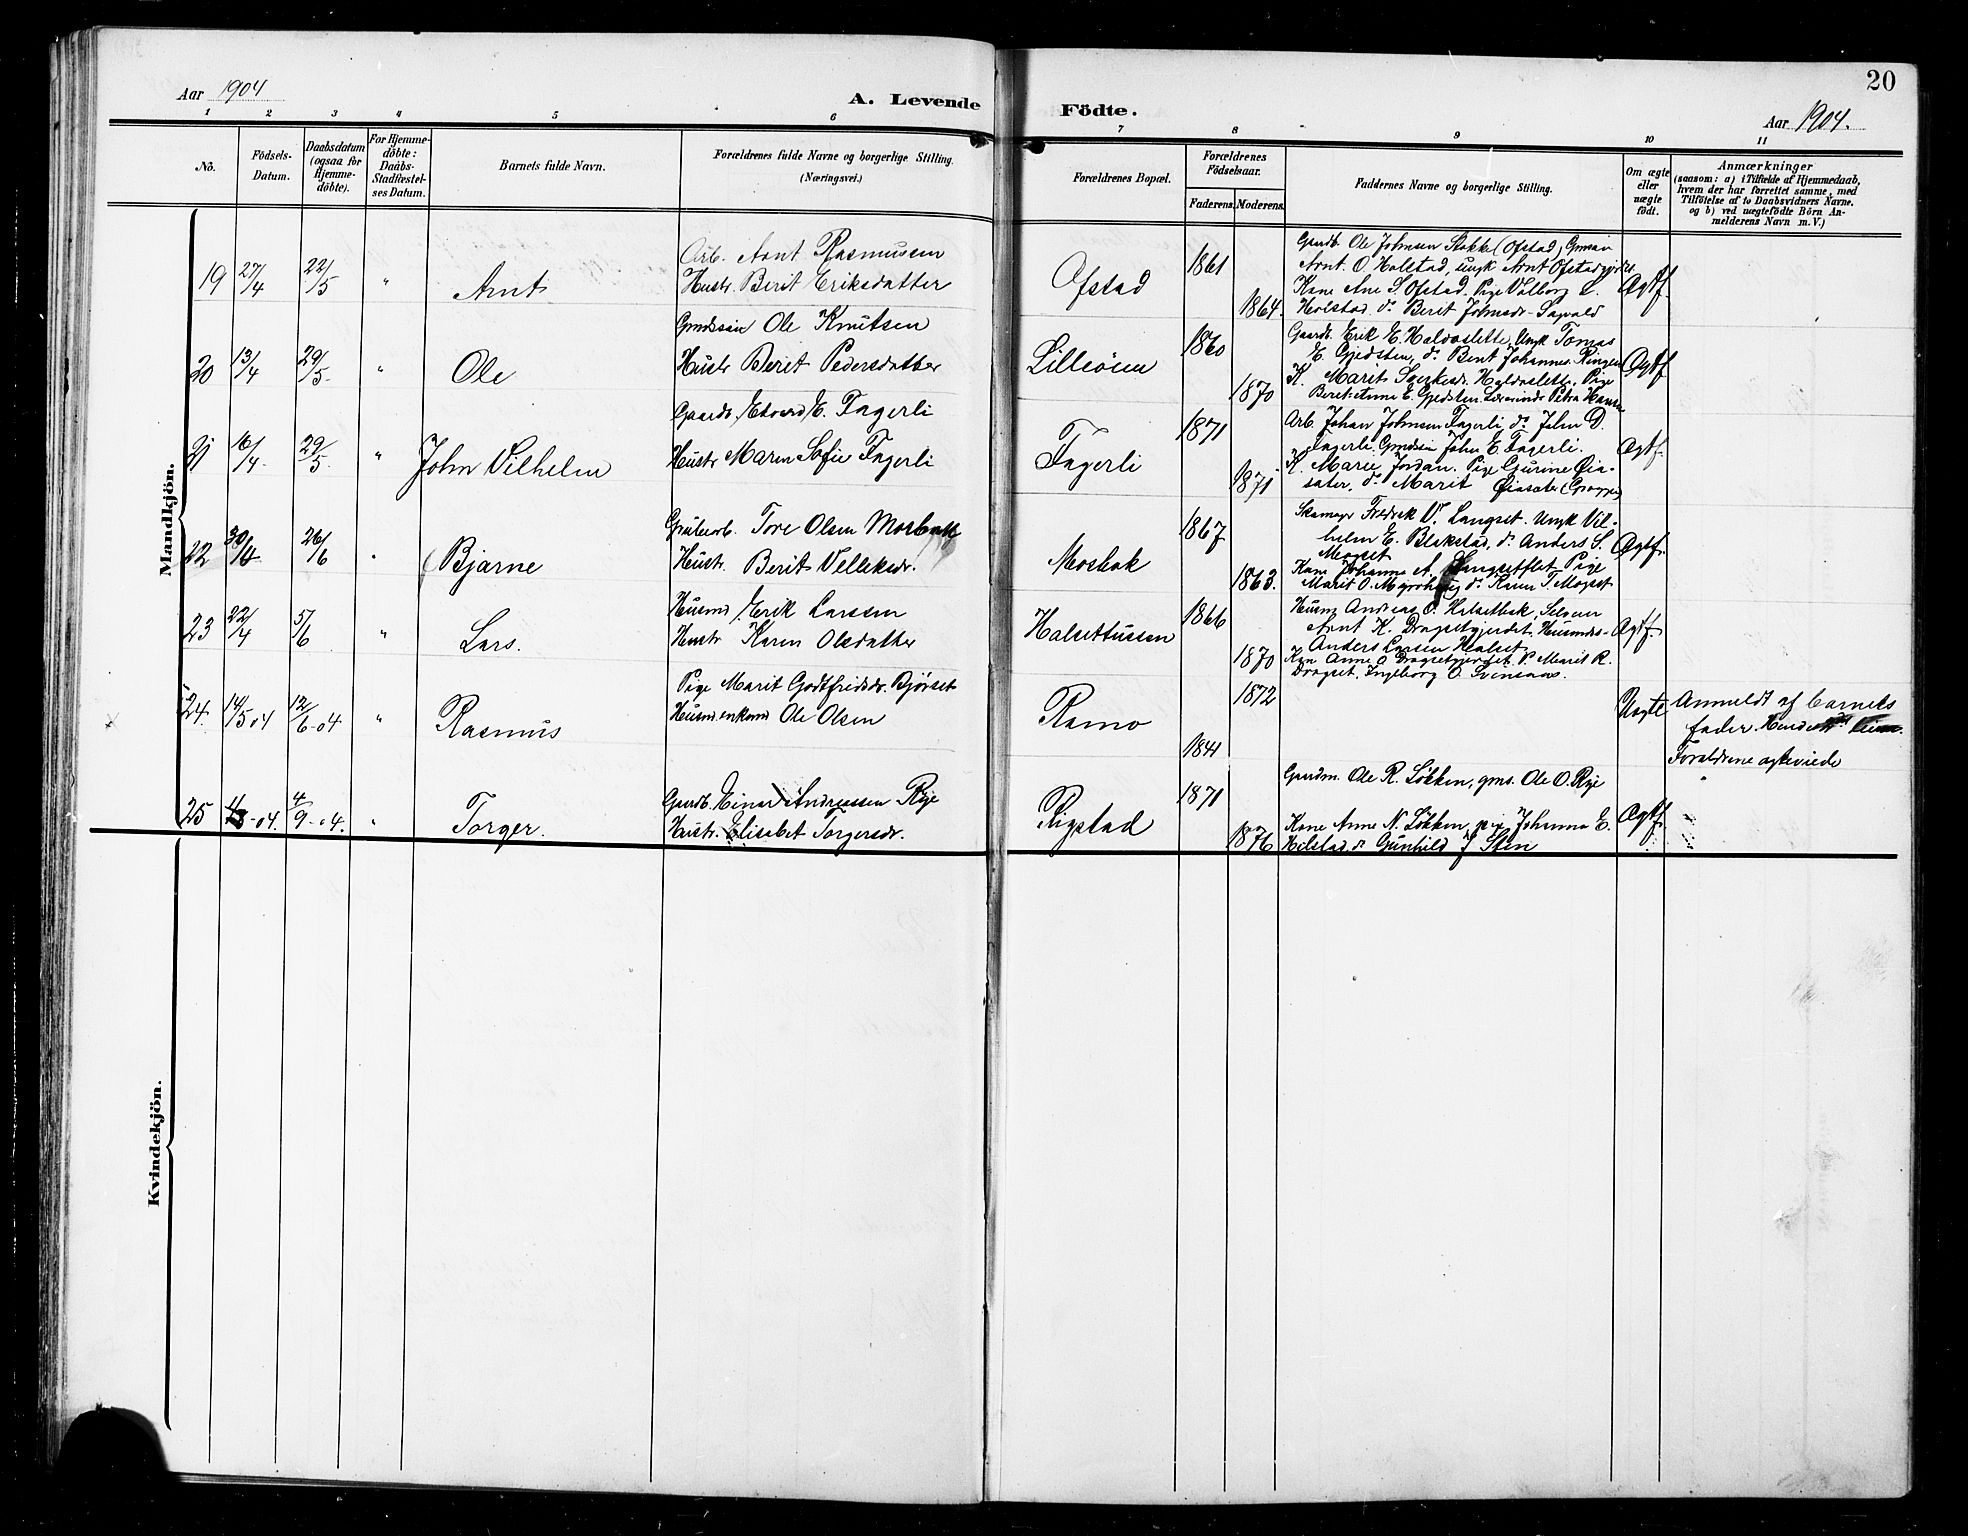 Aar 1904
A. Levende
Födte.
20
Aar 1904.
1 2 3 4 5 6 7 8 9 10 11
No.
Födsels-
Datum.
Daabsdatum
(ogsaa for
Hjemme-
döbte).
For Hjemme-
döbte:
Daabs-
Stadfæstel-
ses Datum.
Barnets fulde Navn.
Forældrenes fulde Navne og borgerlige Stilling.
(Næringsvei.)
Forældrenes Bopæl.
Forældrenes
Födselsaar.
Faderens. Moderens.
Faddernes Navne og borgerlige Stilling.
Om ægte
eller
uægte
födt.
Anmærkninger
(saasom: a) i Tilfælde af Hjemmedaab,
hvem der har forrettet samme, med
Tilföielse af to Daabsvidners Navne,
og b) ved uægtefödte Börn An-
melderens Navn m.V.)
Mandkjön.
19 27/4 22/5 " Arnt
Arb. Arnt Rasmussen
Hustr. Berit Eriksdatter
Ofstad
1861
1864.
Gaardb. Ole Johnsen Stokke (Ofstad,
Arnt O Holstad, ungk Arnt Ofstadgjerdet
Kone Ane S. Ofstad. Pige Valborg L.
Holstad do Berit Johnsdr. Sagvald
Ægtf.
20 13/4 29/5 " Ole
Gmdssøn Ole Knutsen
Hustr Beret Pedersdatter
Lilleöien
1860
1870
Gaardb. Erik E. Haldoslette, Ungk Tomas
E. Gjedsten, do Bent Johannes. Ringen
K. Marit Haldoslette. Pige
Beret-Anne E. Gjedsten. Lærerinde Petra Hansen
Ægtf
21 16/4 29/5 " John Vilhelm
Gaardb. Edvard E. Fagerli
Hustr Maren Sofie Fagerli
Fagerli
1871
1871
Arb. Johan Johnsen Fagerli do John D.
Fagerli. Gmdssøn John E. Fagerli.
K. Marie Jordan. Pige Gurine Øia-
sæter, do Marit Øiasæter
Ægtf.
22 30/4 26/6 " Bjarne
Grubearb. Tore Olsen Mosbak
Hustr. Berit Velleksdr.
Mosbak
1867
1863.
Skomager Fredrik V. Langset. Ungk Vil-
helm E. Blekstad, do Anders S.
Mogset
Kone Johanne A. Langsetflet. Pige
Marit O. do Karen T. Mogset
Ægtf.
23 22/4 5/6 " Lars.
Husmd. Erik Larssen
Hustr Karen Olsdatter
Halsettussen
1866
1870
Husm. Andreas O. Halsetbak,
Arnt K. Dragsetgjerdet, Husmds-
Anders Larsen Halset
Kon Anne O Dragsetgjerdet P. Marit R.
Dragset, Ingeborg O. Svensaas.
Ægtf.
24. 14/5 04 12/6-04 " Rasmus
Pige Marit Godtfredsdr. Bjørset
Husmd enkemd Ole Olsen
Ramo
1872
1841
Uægte
Anmeldt af barnets
fader.
Forældrene ægteviede
25 -04. 4/9-04. " Torger.
Gaardb. Einar Andreassen Rye
Hustr. Elisabet Torgersdr.
Rigstad
1871
1876
Gaardm. Ole R. Løkken, gms. Ole O. Rye
Kone Anne N. Løkken, pige Johanna E.
Hilstad, do Gunhild J Sten
Ægtf.
Kvindekjön.